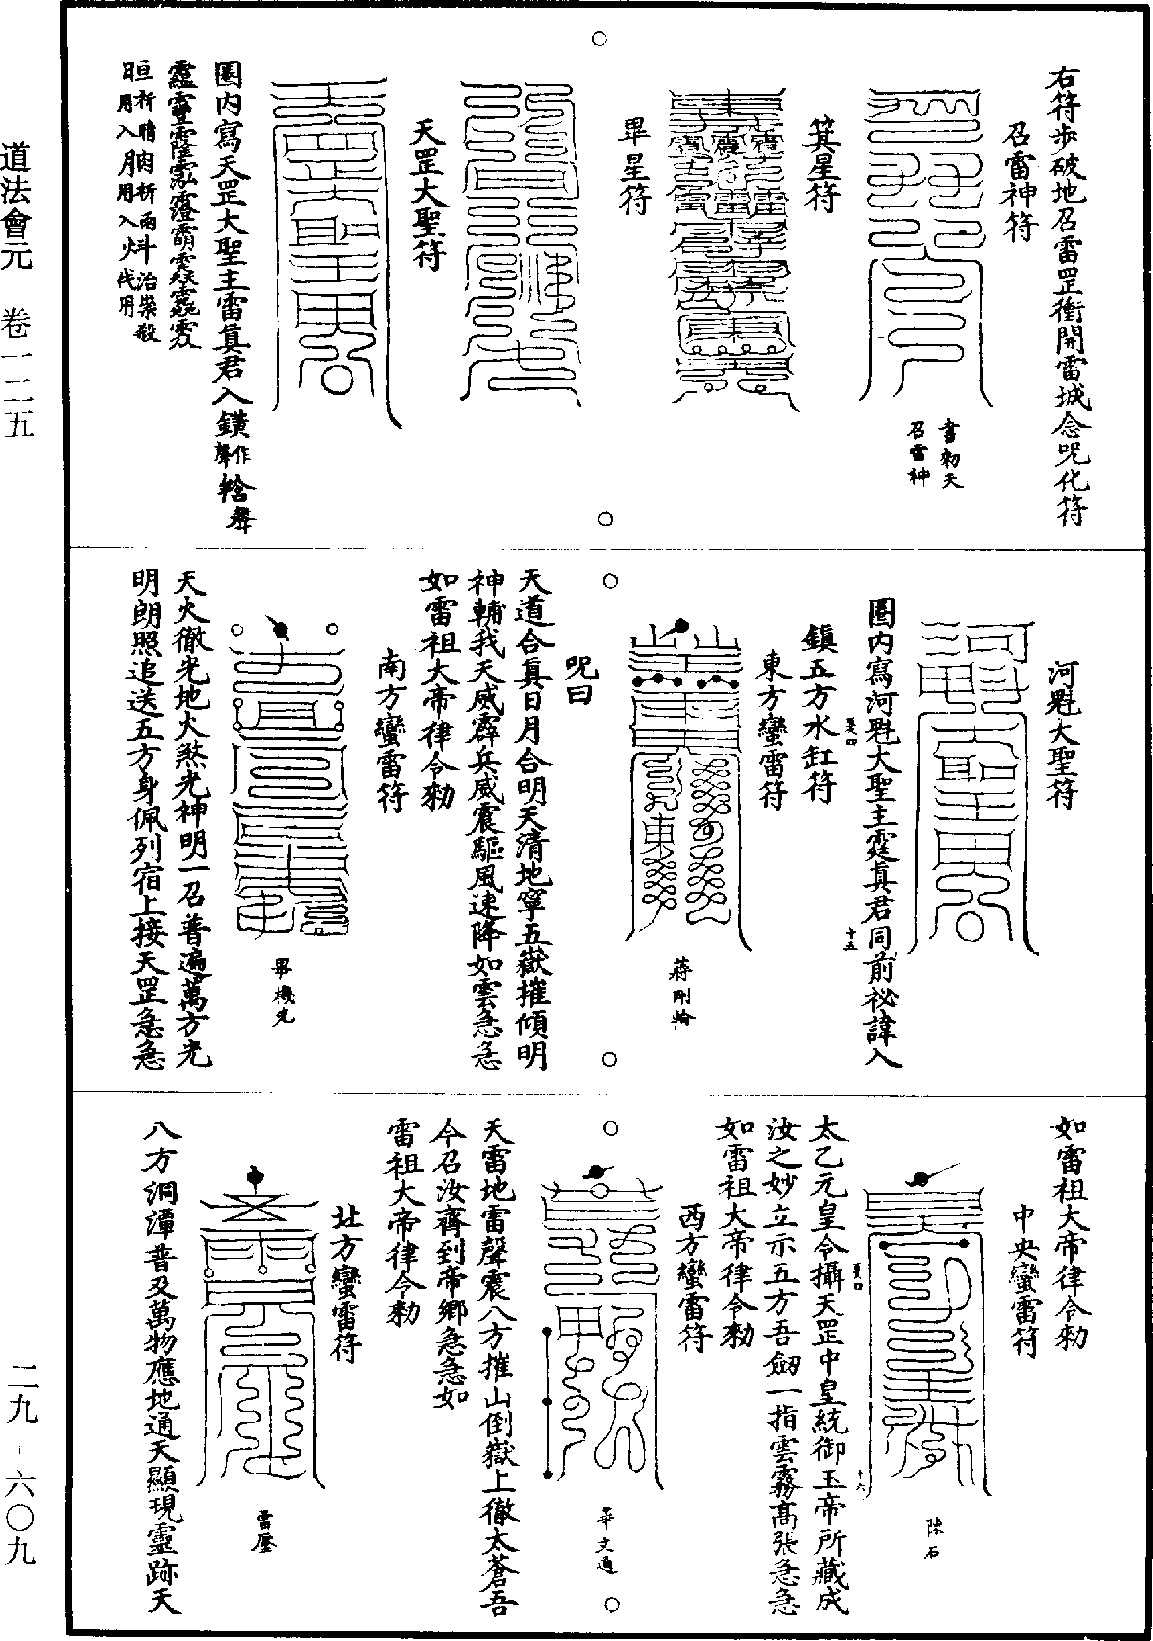 道法會元　卷一二五
二九-六〇九
右符步破地召雷罡衝開雷城念呪化符
召雷神符
書勑天
召雷神
箕星符
畢星符
天罡大聖符
圈内寫天罡大聖主雷真君入鐼作聲
日用入月用入火伐用
河魁大聖符
圈内寫河魁大聖主霆真君同前祕諱入
鎮五方水缸符
十五
東方蠻雷符
蔣剛輪
呪曰
天道合真日月合明天清地寧五嶽摧傾明
神輔我天威霹兵威震驅風速降如雲急急
如雷祖大帝律令勑
南方蠻雷符
畢機先
天火徹光地火煞光神明一召普遍萬方光
明朗照追送五方身佩列宿上接天罡急急
如雷祖大帝律令勑
中央蠻雷符
陳石
十六
太乙元皇令攝天罡中皇統御玉帝所藏成
汝之妙立示五方吾劒一指雲霧高張急急
如雷祖大帝律令勑
西方蠻雷符
華文通
天雷地雷聲震八方摧山倒嶽上徹太蒼吾
今召汝齊到帝鄉急急如
雷祖大帝律令勑
北方蠻雷符
雷壓
八方洞潭普及萬物應地通天顯現靈跡天